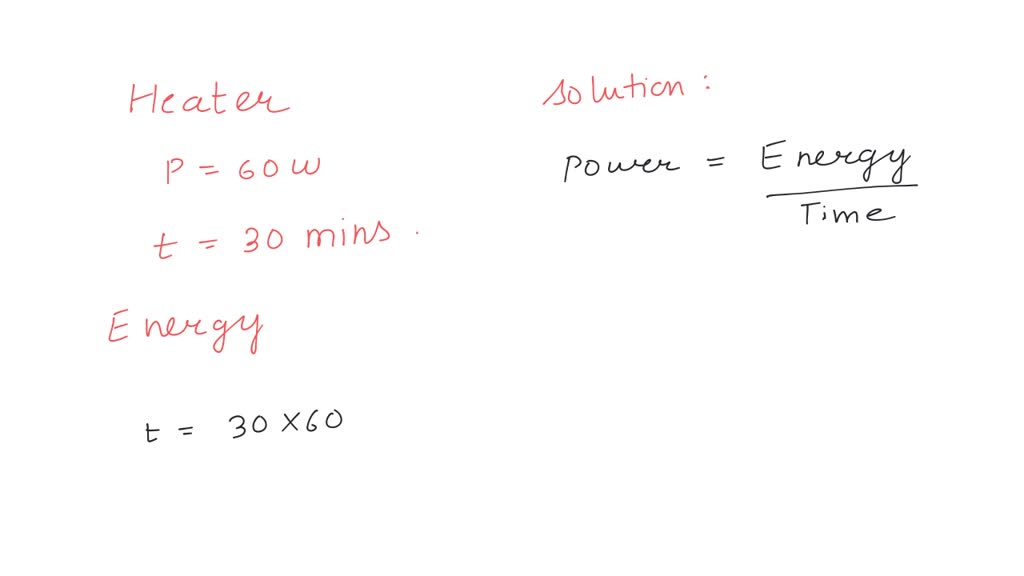 Heater
P = 60 W
t = 30 mins.
Energy
t = 30 × 60
Solution :
Power = Energy
Time